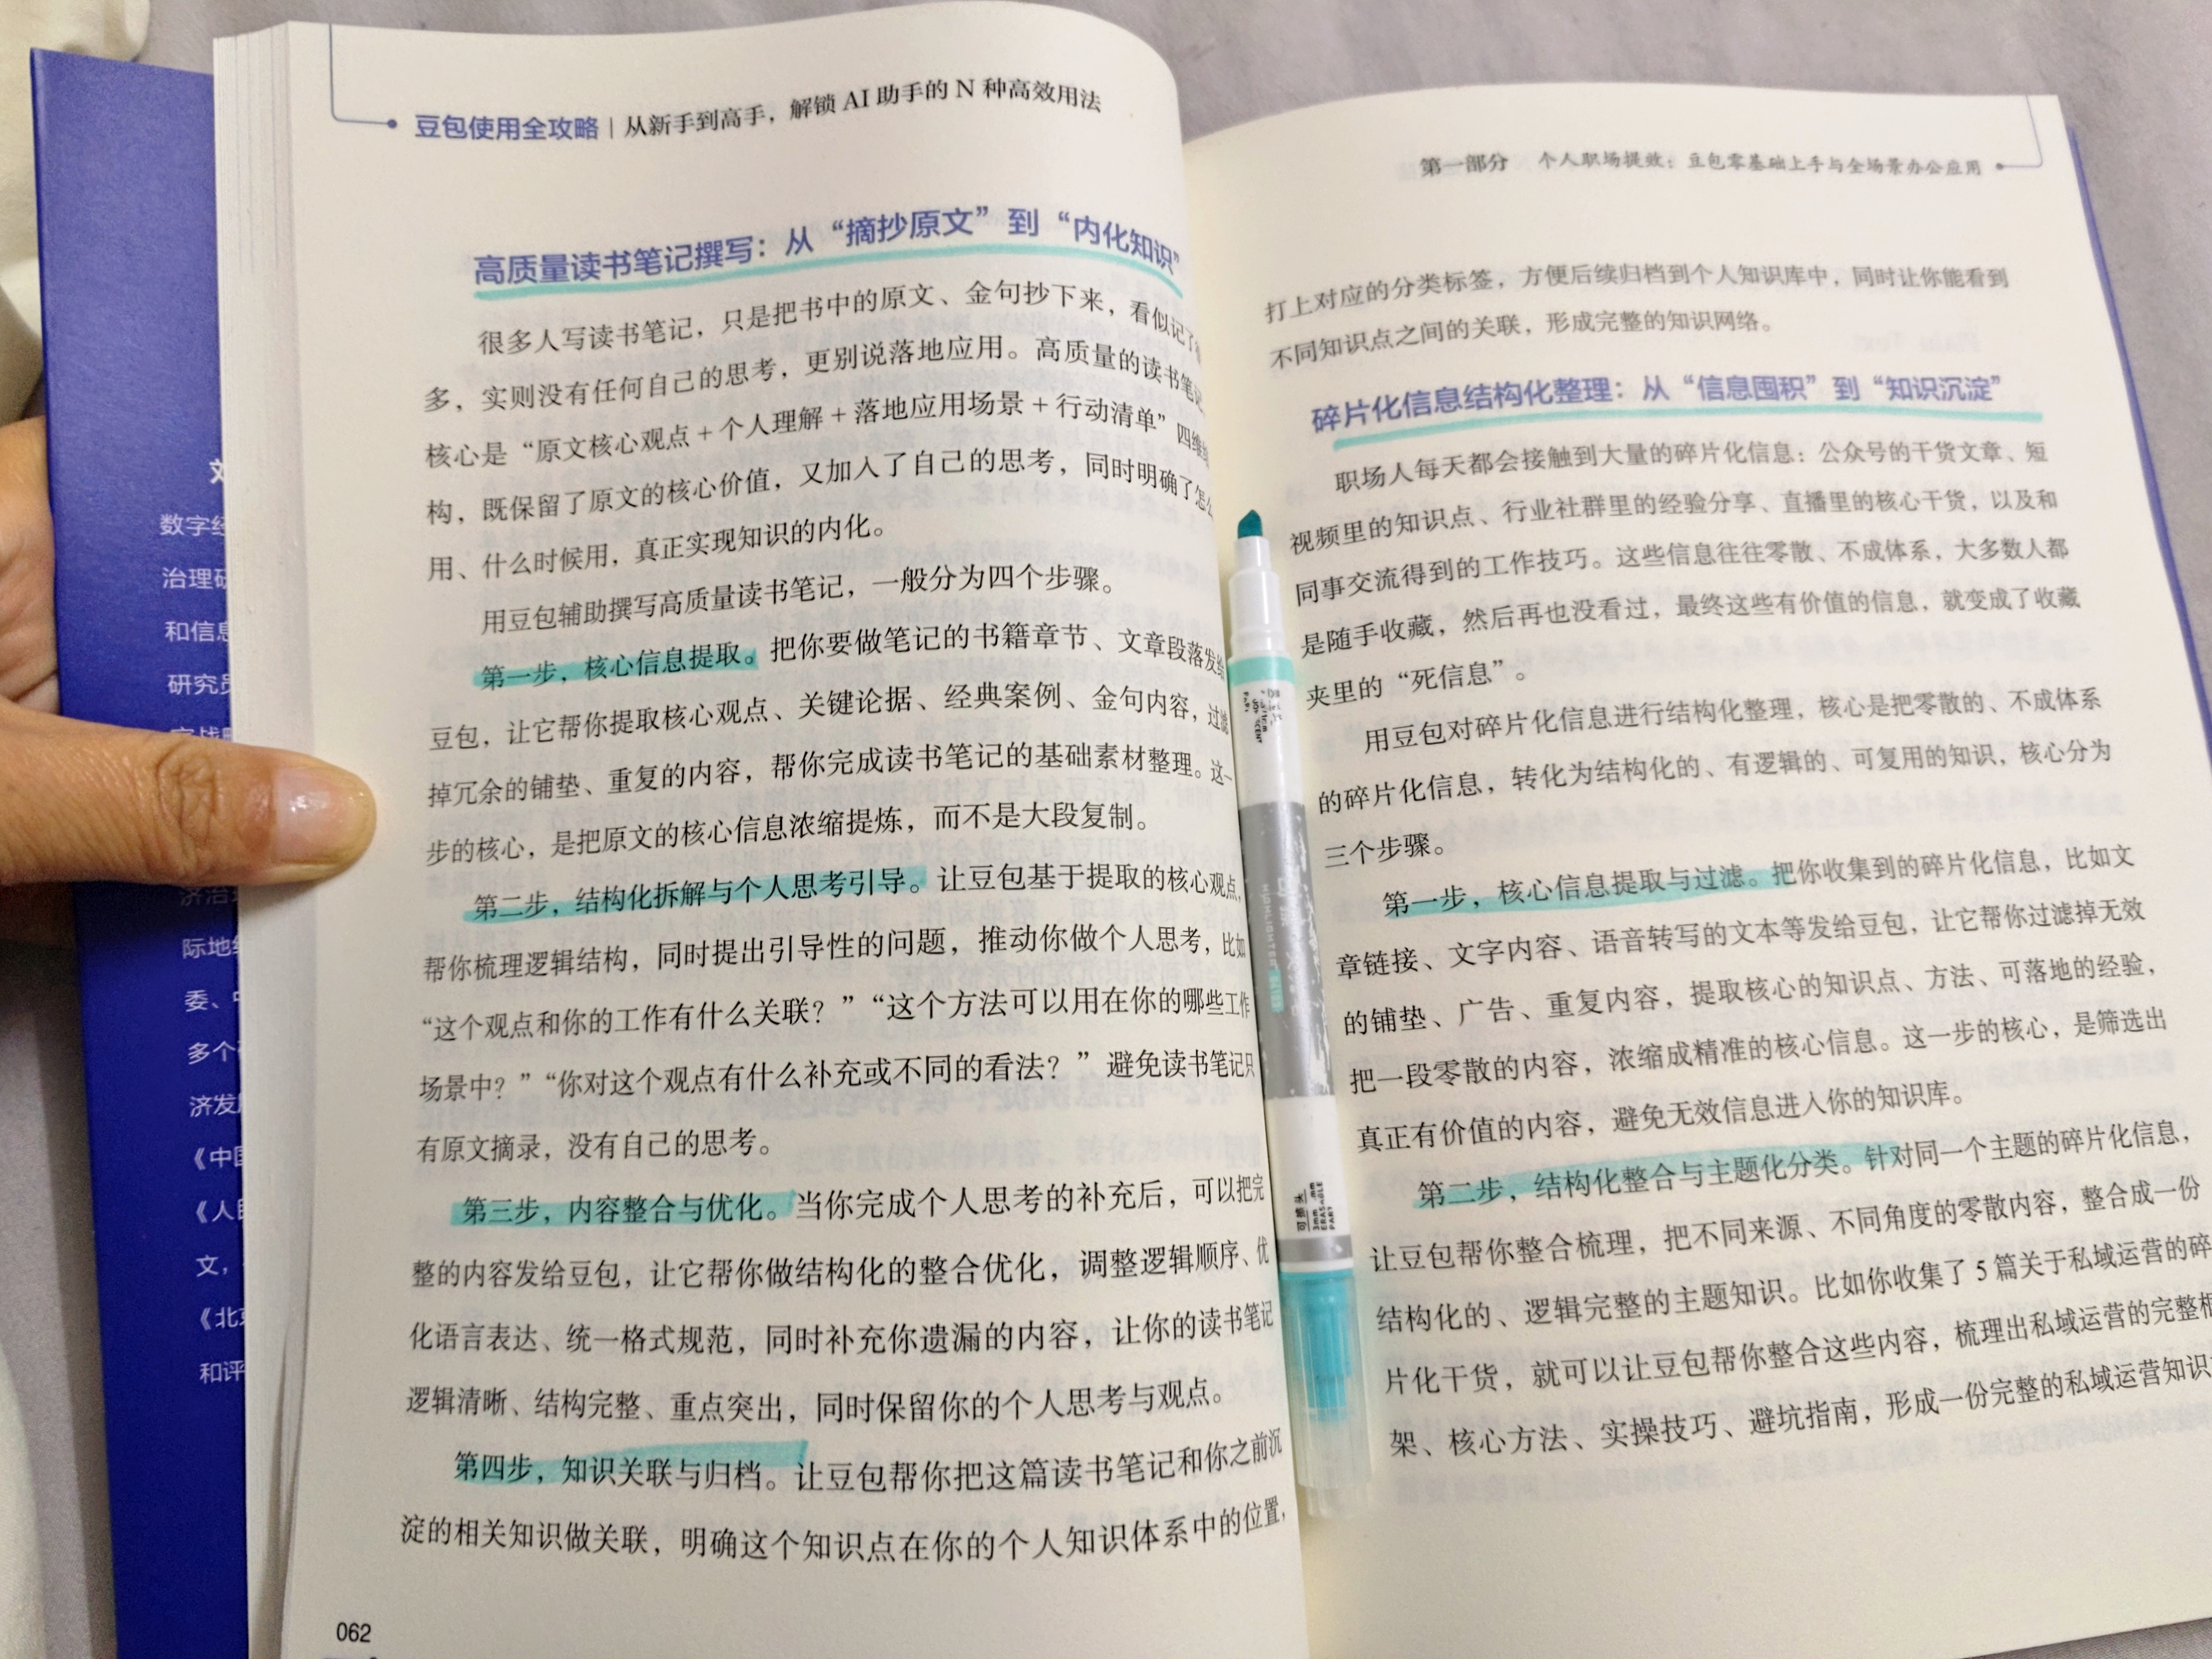 豆包使用全攻略 | 从新手到高手，解锁 AI 助手的 N 种高效用法
高质量读书笔记撰写：从“摘抄原文”到“内化知识”
很多人写读书笔记，只是把书中的原文、金句抄下来，看似记了
多，实则没有任何自己的思考，更别说落地应用。高质量的读书笔记，
核心是“原文核心观点 + 个人理解 + 落地应用场景 + 行动清单”四维
构，既保留了原文的核心价值，又加入了自己的思考，同时明确了怎么
用、什么时候用，真正实现知识的内化。
用豆包辅助撰写高质量读书笔记，一般分为四个步骤。
第一步，核心信息提取。把你要做笔记的书籍章节、文章段落发给
豆包，让它帮你提取核心观点、关键论据、经典案例、金句内容，过滤
掉冗余的铺垫、重复的内容，帮你完成读书笔记的基础素材整理。这一
步的核心，是把原文的核心信息浓缩提炼，而不是大段复制。
第二步，结构化拆解与个人思考引导。让豆包基于提取的核心观点，
帮你梳理逻辑结构，同时提出引导性的问题，推动你做个人思考，比如
“这个观点和你的工作有什么关联？”“这个方法可以用在你的哪些工作
场景中？”“你对这个观点有什么补充或不同的看法？”避免读书笔记只
有原文摘录，没有自己的思考。
第三步，内容整合与优化。当你完成个人思考的补充后，可以把完
整的内容发给豆包，让它帮你做结构化的整合优化，调整逻辑顺序、优
化语言表达、统一格式规范，同时补充你遗漏的内容，让你的读书笔记
逻辑清晰、结构完整、重点突出，同时保留你的个人思考与观点。
第四步，知识关联与归档。让豆包帮你把这篇读书笔记和你之前沉
淀的相关知识做关联，明确这个知识点在你的个人知识体系中的位置，
062
第一部分 个人职场提效：豆包零基础上手与全场景办公应用
打上对应的分类标签，方便后续归档到个人知识库中，同时让你能看到
不同知识点之间的关联，形成完整的知识网络。
碎片化信息结构化整理：从“信息囤积”到“知识沉淀”
职场人每天都会接触到大量的碎片化信息：公众号的干货文章、短
视频里的知识点、行业社群里的经验分享、直播里的核心干货，以及和
同事交流得到的工作技巧。这些信息往往零散、不成体系，大多数人都
是随手收藏，然后再也没看过，最终这些有价值的信息，就变成了收藏
夹里的“死信息”。
用豆包对碎片化信息进行结构化整理，核心是把零散的、不成体系
的碎片化信息，转化为结构化的、有逻辑的、可复用的知识，核心分为
三个步骤。
第一步，核心信息提取与过滤。把你收集到的碎片化信息，比如文
章链接、文字内容、语音转写的文本等发给豆包，让它帮你过滤掉无效
的铺垫、广告、重复内容，提取核心的知识点、方法、可落地的经验，
把一段零散的内容，浓缩成精准的核心信息。这一步的核心，是筛选出
真正有价值的内容，避免无效信息进入你的知识库。
第二步，结构化整合与主题化分类。针对同一个主题的碎片化信息，
让豆包帮你整合梳理，把不同来源、不同角度的零散内容，整合成一份
结构化的、逻辑完整的主题知识。比如你收集了 5 篇关于私域运营的碎
片化干货，就可以让豆包帮你整合这些内容，梳理出私域运营的完整框
架、核心方法、实操技巧、避坑指南，形成一份完整的私域运营知识
数字经
治理研
和信息
研究员
际地
委、
多个
济发
《中国
《人民
文，
《北京
和评
HIGHLIGHTER
可擦头